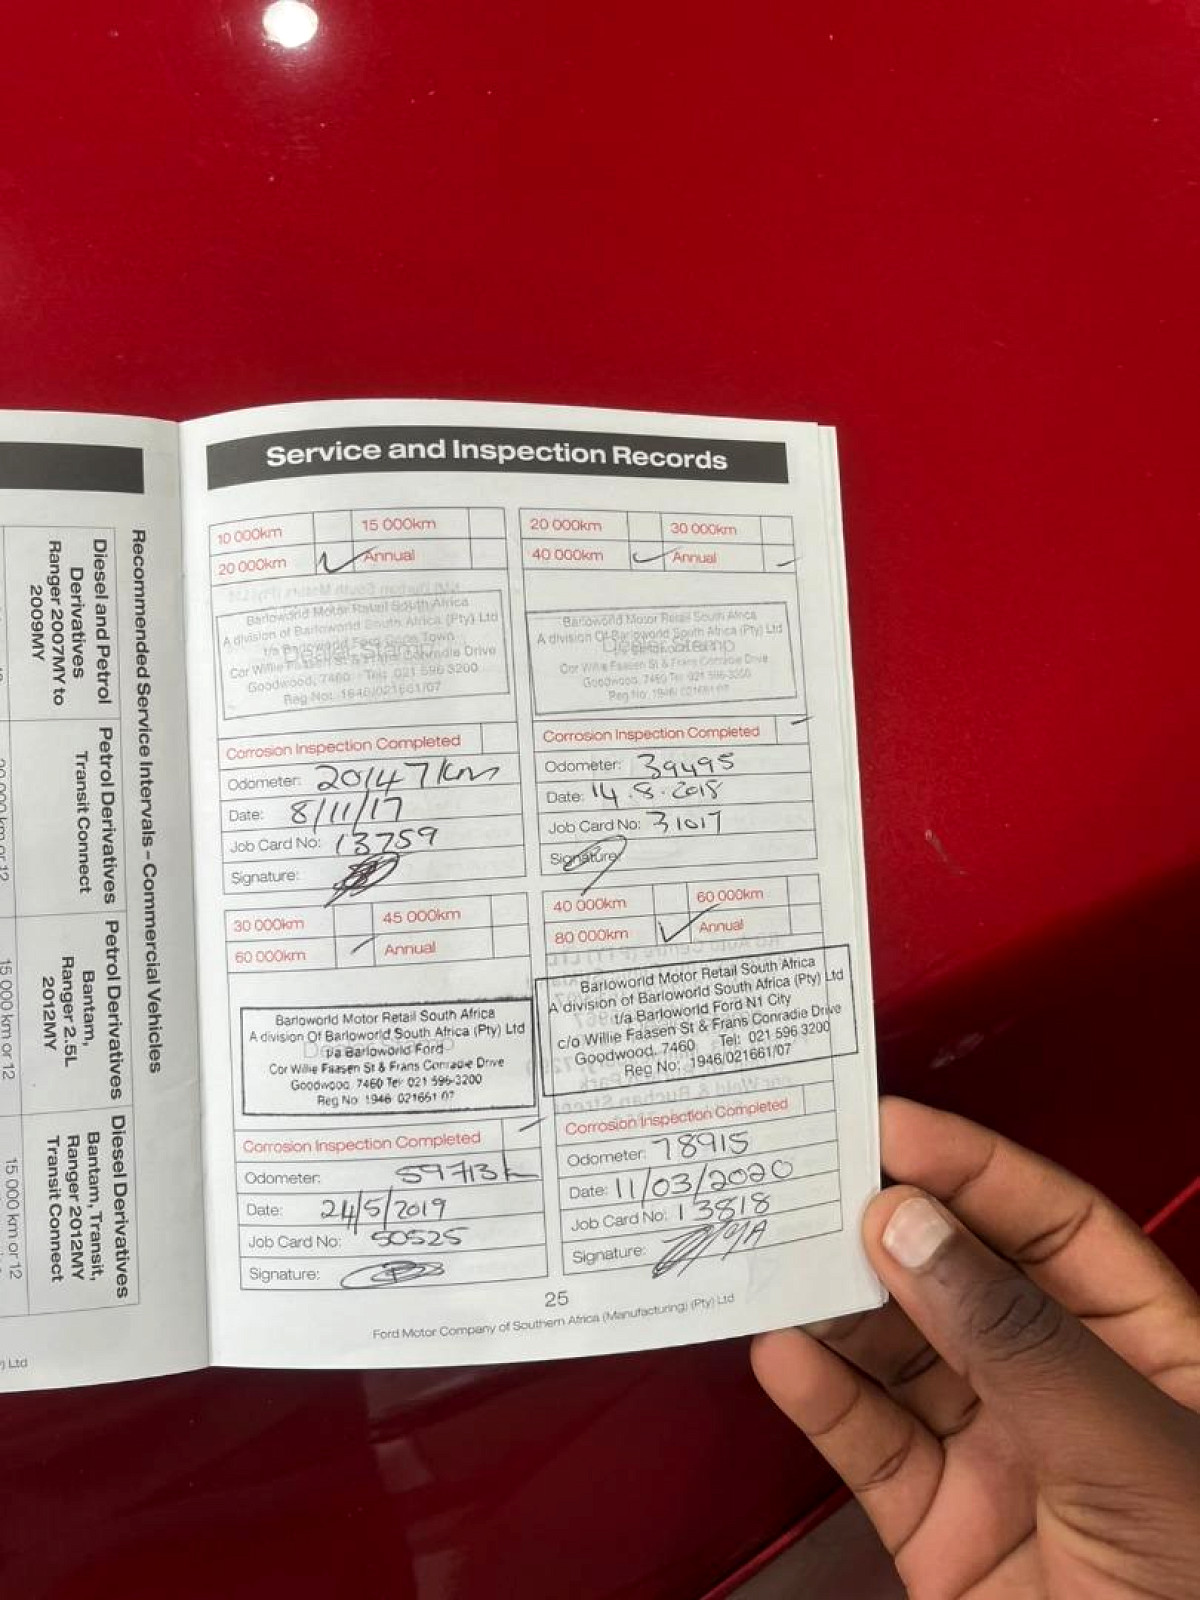 Service and Inspection Records
10 000km 15 000km
20 000km Annual
Barloworld Motor Retail South Africa
A division of Barloworld South Africa (Pty) Ltd
t/a Barloworld Ford Cape Town
Cor Willie Faasen St & Frans Conradie Drive
Goodwood, 7460 Tel: 021 596 3200
Reg No: 1946/021661/07
Corrosion Inspection Completed
Odometer: 20147km
Date: 8/11/17
Job Card No: 13759
Signature:
20 000km 30 000km
40 000km Annual
Barloworld Motor Retail South Africa
A division Of Barloworld South Africa (Pty) Ltd
Dealer Stamp
Cor Willie Faasen St & Frans Conradie Drive
Goodwood, 7460 Tel: 021 596-3200
Reg No: 1946/021661/07
Corrosion Inspection Completed
Odometer: 39495
Date: 14.8.2018
Job Card No: 31017
Signature:
30 000km 45 000km
60 000km Annual
Barloworld Motor Retail South Africa
A division Of Barloworld South Africa (Pty) Ltd
t/a Barloworld Ford
Cor Willie Faasen St & Frans Conradie Drive
Goodwood, 7460 Tel: 021 596-3200
Reg No 1946 021661 07
Corrosion Inspection Completed
Odometer: 59713k
Date: 24/5/2019
Job Card No: 50525
Signature:
40 000km 60 000km
80 000km Annual
Barloworld Motor Retail South Africa
A division of Barloworld South Africa (Pty) Ltd
t/a Barloworld Ford N1 City
c/o Willie Faasen St & Frans Conradie Drive
Goodwood, 7460 Tel: 021 596 3200
Reg No: 1946/021661/07
Corrosion Inspection Completed
Odometer: 78915
Date: 11/03/2020
Job Card No: 13818
Signature:
25
Ford Motor Company of Southern Africa (Manufacturing) (Pty) Ltd
Recommended Service Intervals - Commercial Vehicles
Diesel and Petrol
Derivatives
Ranger 2007MY to
2009MY
Petrol Derivatives
Transit Connect
Petrol Derivatives
Bantam,
Ranger 2.5L
2012MY
Diesel Derivatives
Bantam, Transit,
Ranger 2012MY
Transit Connect
20 000 km or 12
15 000 km or 12
15 000 km or 12
) Ltd